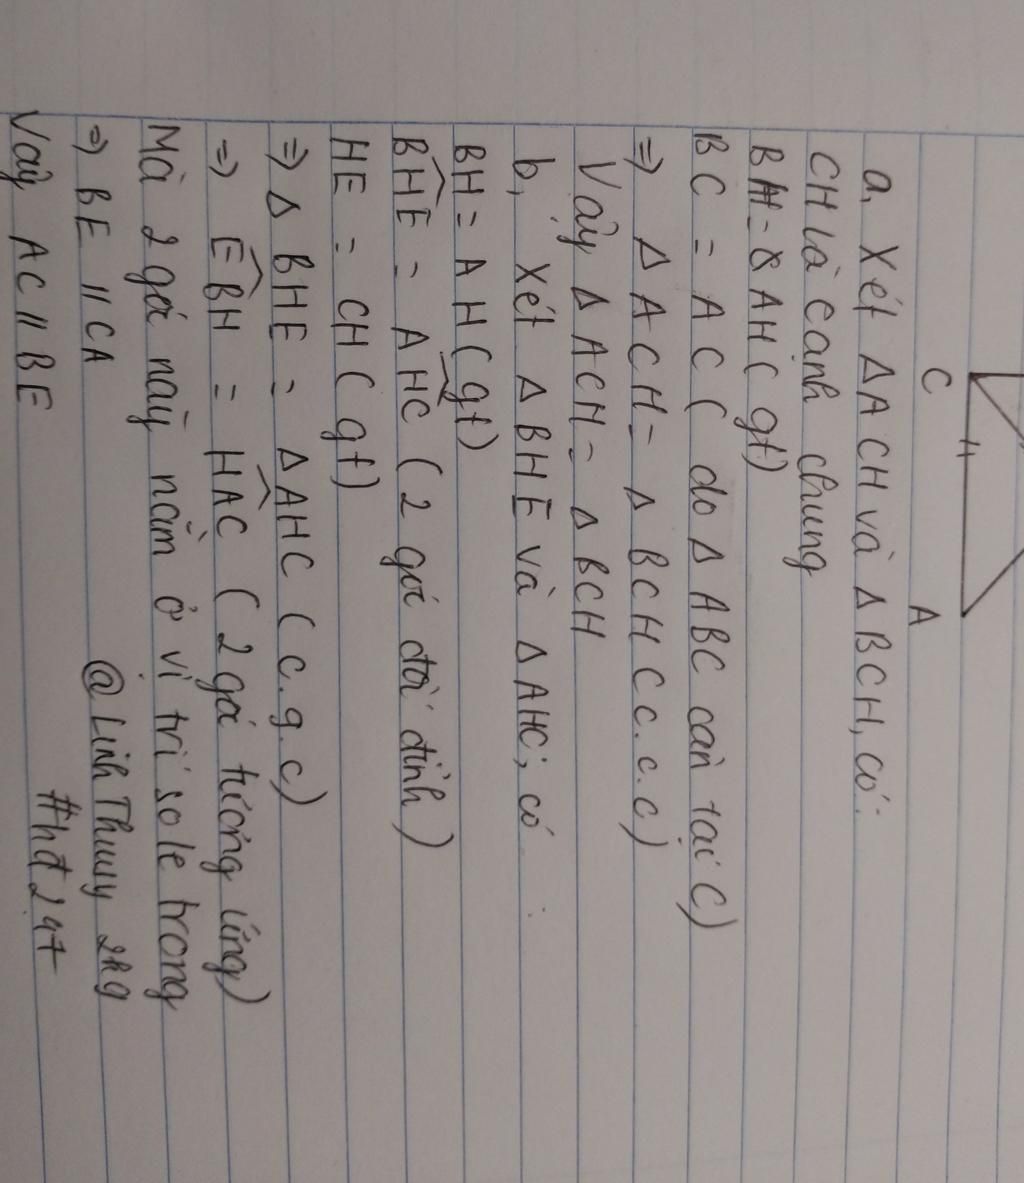 C A
a, Xét Δ ACH và Δ BCH, có:
CH là cạnh chung
BH = AH ( gt)
BC = AC ( do Δ ABC cân tại C)
=> Δ ACH = Δ BCH ( c.c.c)
Vậy Δ ACH = Δ BCH
b, Xét Δ BHE và Δ AHC; có
BH = AH ( gt)
BHE = AHC ( 2 góc đối đỉnh )
HE = CH ( gt)
=> Δ BHE = Δ AHC ( c.g.c)
=> EBH = HAC ( 2 góc tương ứng)
Mà 2 góc này nằm ở vị trí so le trong
=> BE // CA @LinhThuuy 2k9
Vậy AC // BE #hđ247